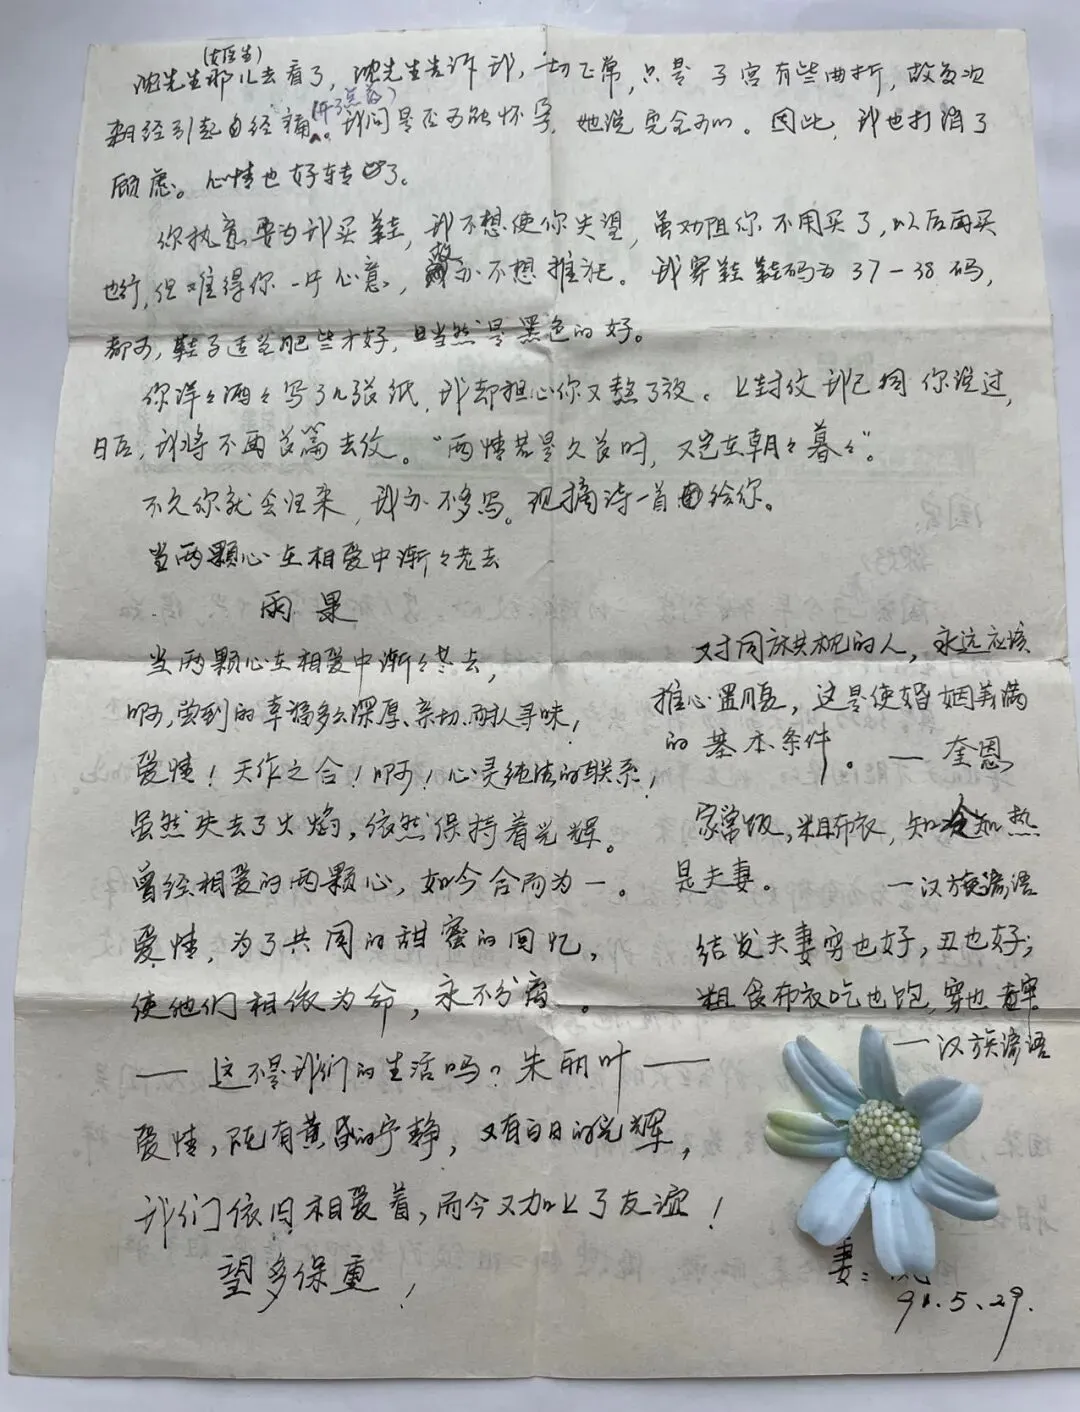 (女医生)
沈先生那儿去看了，沈先生告诉我，一切正常，只是子宫有些曲折，故每次
来经引起白经痛(开了点药)。我问是否可能怀孕，她说完全可以。因此，我也打消了
顾虑。心情也好转了。
你执意要为我买鞋，我不想使你失望，虽劝阻你不用买了，以后再买
也行，但难得你一片心意，故亦不想推讬。我穿鞋鞋码为37－38码，
都可，鞋子适当肥些才好，且当然是黑色的好。
你洋々洒々写了几张纸，我却担心你又熬了夜。上封信我已同你说过，
日后，我将不再长篇去信。“两情若是久长时，又岂在朝々暮々”。
不久你就会归来，我亦不多写。现摘诗一首给你。
当两颗心在相爱中渐々老去
雨果
当两颗心在相爱中渐々老去，
啊，尝到的幸福多么深厚、亲切、耐人寻味，
爱情！天作之合！啊！心灵纯洁的联系，
虽然失去了火焰，依然保持着光辉。
曾经相爱的两颗心，如今合而为一。
爱情，为了共同的甜蜜的回忆，
使他们相依为命，永不分离。
— 这不是我们的生活吗？朱丽叶 —
爱情，既有黄昏的宁静，又有白日的光辉，
我们依旧相爱着，而今又加上了友谊！
望多保重！
对同床共枕的人，永远应该
推心置腹，这是使婚姻美满
的基本条件。— 奎恩
家常饭，粗布衣，知冷知热
是夫妻。—汉族谚语
结发夫妻穷也好，丑也好；
粗食布衣吃也饱，穿也牢。
—汉族谚语
妻：
91.5.29.